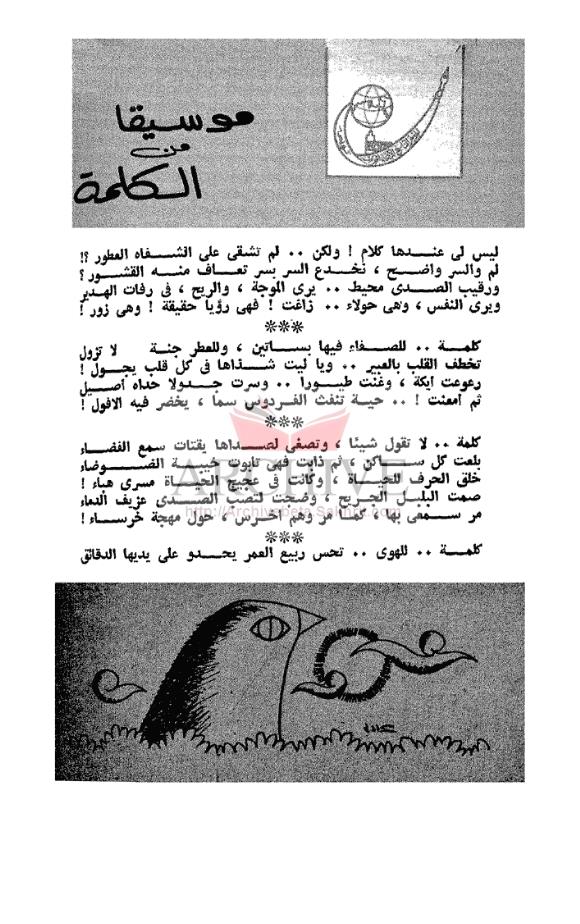 موسيقا
من
الكلمة
ليس لى عندها كلام ! ولكن .. لم تشقى على الشفاه العطور ؟!
لم والسر واضح ، نخدع السر بسر تعاف منه القشور ؟
ورقيب الصدى محيط .. يرى الموجة ، والريح ، فى رفات الهدير
ويرى النفس ، وهى حولاء .. زاغت ! فهى رؤيا حقيقة ! وهى زور !
***
كلمة .. للصفاء فيها بساتين ، وللعطر جنة لا تزول
تخطف القلب بالعبير .. ويا ليت شذاها فى كل قلب يجول !
رعوعت أيكة ، وغنت طيورا .. وسرت جدولا حداه أصيل
ثم أمعنت ! .. حية تنفث الفردوس سما ، يخضر فيه الافول !
***
كلمة .. لا تقول شيئا ، وتصغى لصداها يقتات سمع الفضاء
بلعت كل ساكن ، ثم ذابت فهى تابوت خيبة الضوضاء
خلق الحرف للحياة ، وكانت فى عجيج الحياة مسرى هباء !
صمت البلبل الجريح ، وضجت لتصب الصدى عزيف الدماء
مر سمعى بها ، كما مر وهم أخرس ، حول مهجة خرساء !
***
كلمة .. للهوى .. تحس ربيع العمر يحدو على يديها الدقائق
ARCHIVE
http://Archivebeta.Sakhrit.com